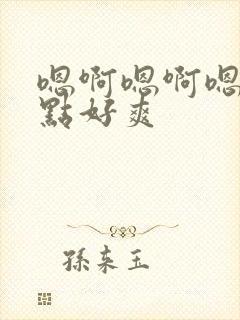 嗯啊嗯啊嗯
點好爽
孫來玉